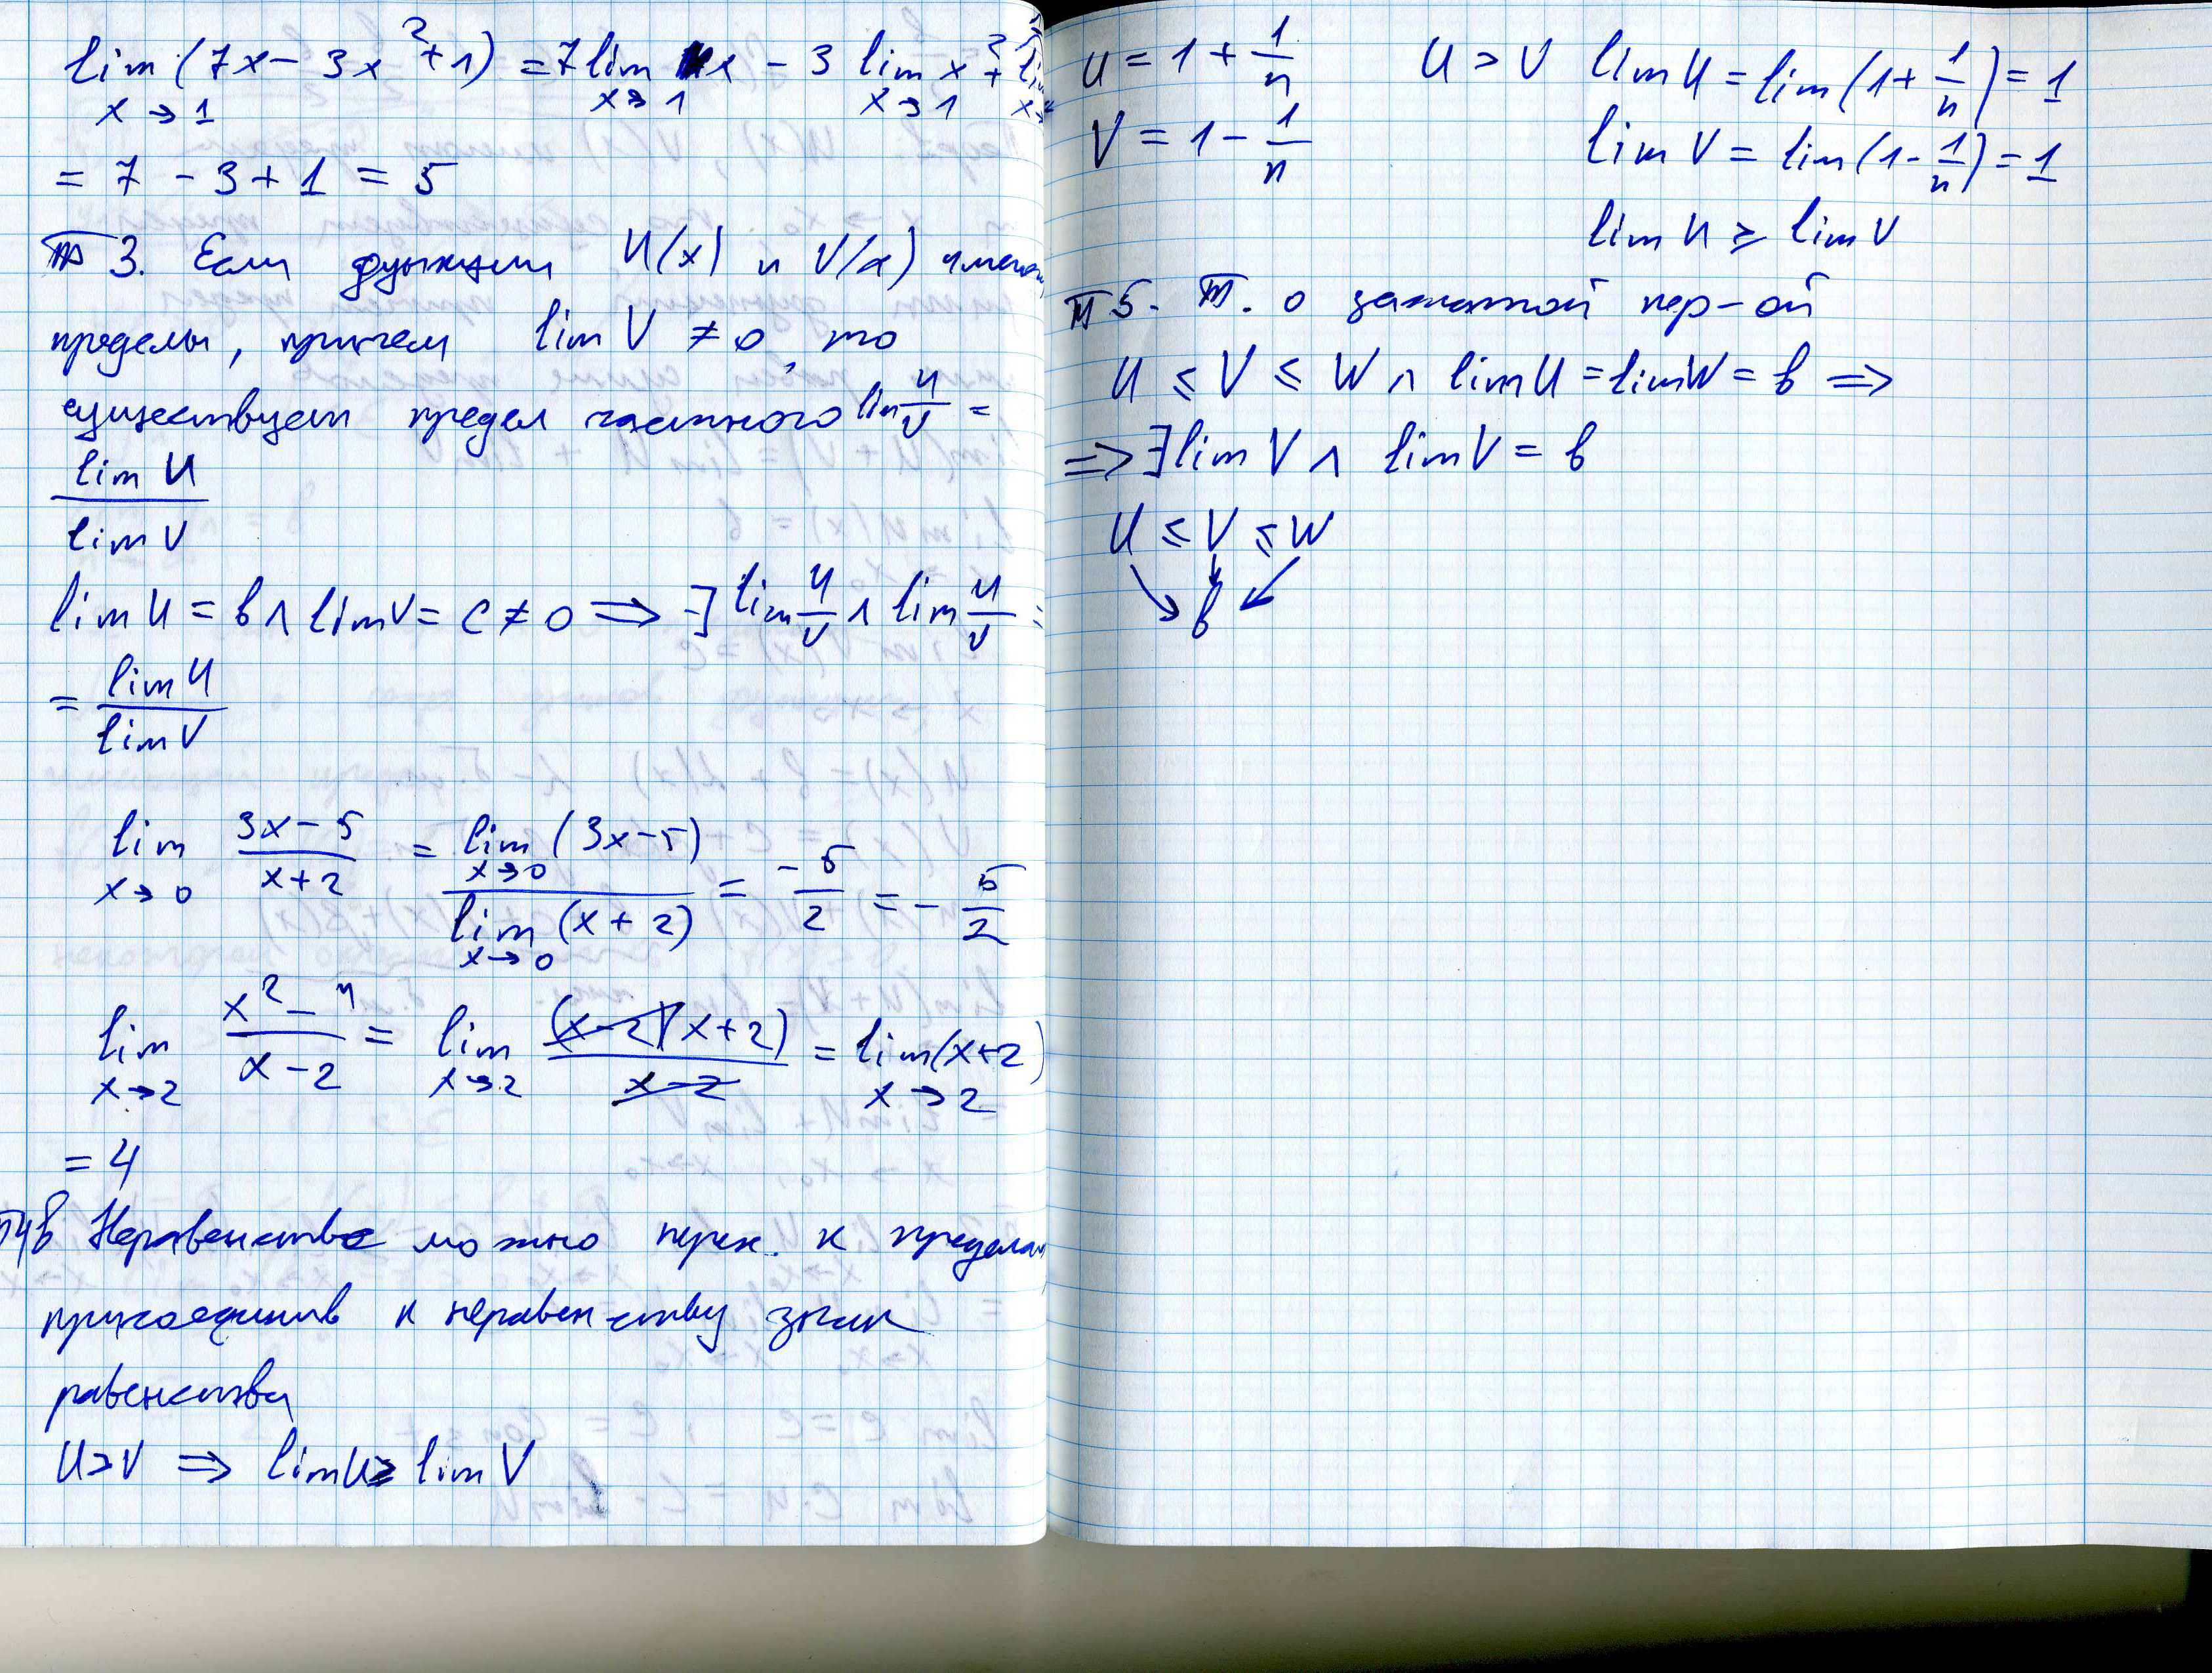 lim (7x - 3x² + 1) = 7 lim x - 3 lim x² + lim
x→1 x→1 x→1
= 7 - 3 + 1 = 5
Т 3. Если функции U(x) и V(x) имеют
пределы, причем lim V ≠ 0, то
существует предел частного lim U/V =
lim U / lim V
lim U = b ∧ lim V = c ≠ 0 ⇒ ∃ lim U/V ∧ lim U/V =
= lim U / lim V
lim (3x-5)/(x+2) = lim (3x-5) / lim (x+2) = -5/2 = - 5/2
x→0 x→0 x→0
lim (x²-4)/(x-2) = lim (x-2)(x+2)/(x-2) = lim (x+2)
x→2 x→2 x→2
= 4
Т4 В неравенстве можно перех. к пределам
присоединив к неравен-ству знак
равенства
U > V ⇒ lim U ≥ lim V
U = 1 + 1/n U > V lim U = lim (1 + 1/n) = 1
V = 1 - 1/n lim V = lim (1 - 1/n) = 1
lim U ≥ lim V
Т 5. Т. о зажатой пер-ой
U ≤ V ≤ W ∧ lim U = lim W = b ⇒
⇒ ∃ lim V ∧ lim V = b
U ≤ V ≤ W
b